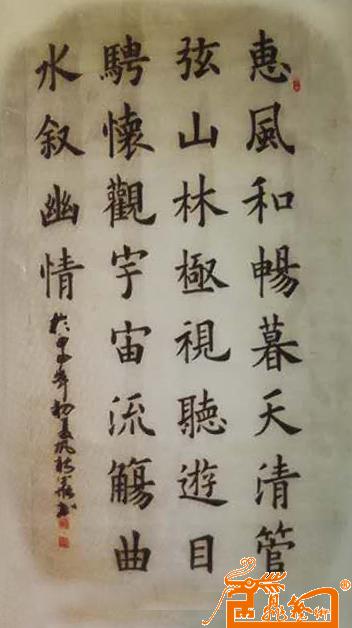 惠風和暢暮天清管
弦山林極視聽遊目
騁懷觀宇宙流觴曲
水叙幽情